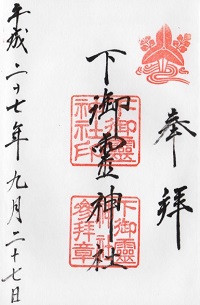 奉拝
下御霊神社
下御霊神社印
下御霊神社参拝章
平成二十七年九月二十七日